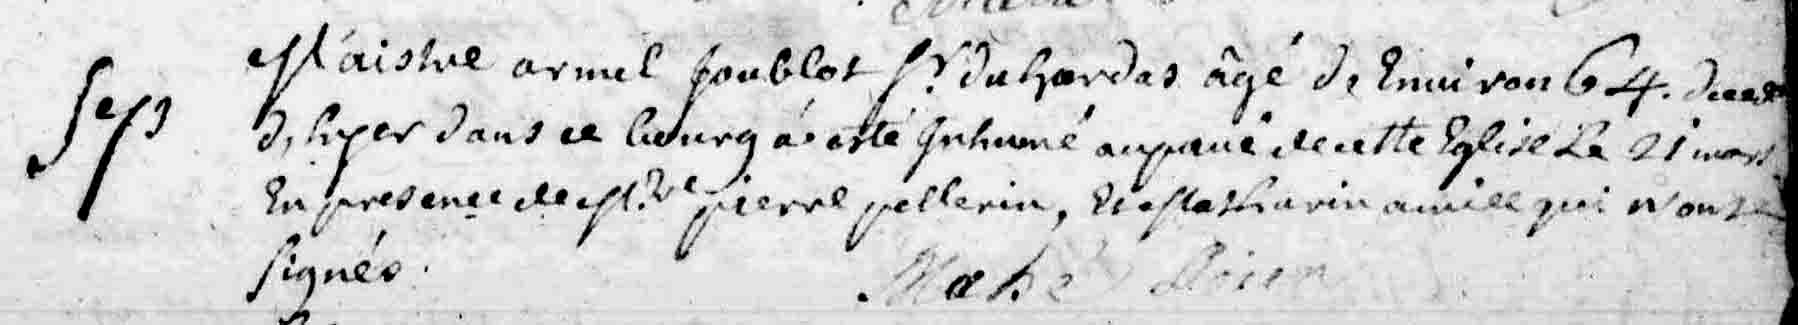 Sep
Maistre armel Joublot Sr. du hardas âgé de Environ 64. decedé
d, hyer dans ce bourg á esté Inhumé au pavé de cette Eglise Le 21 mars
En presence de Mtre pierre pellerin, Et Matharin qui n'ont
signés.
Mahé